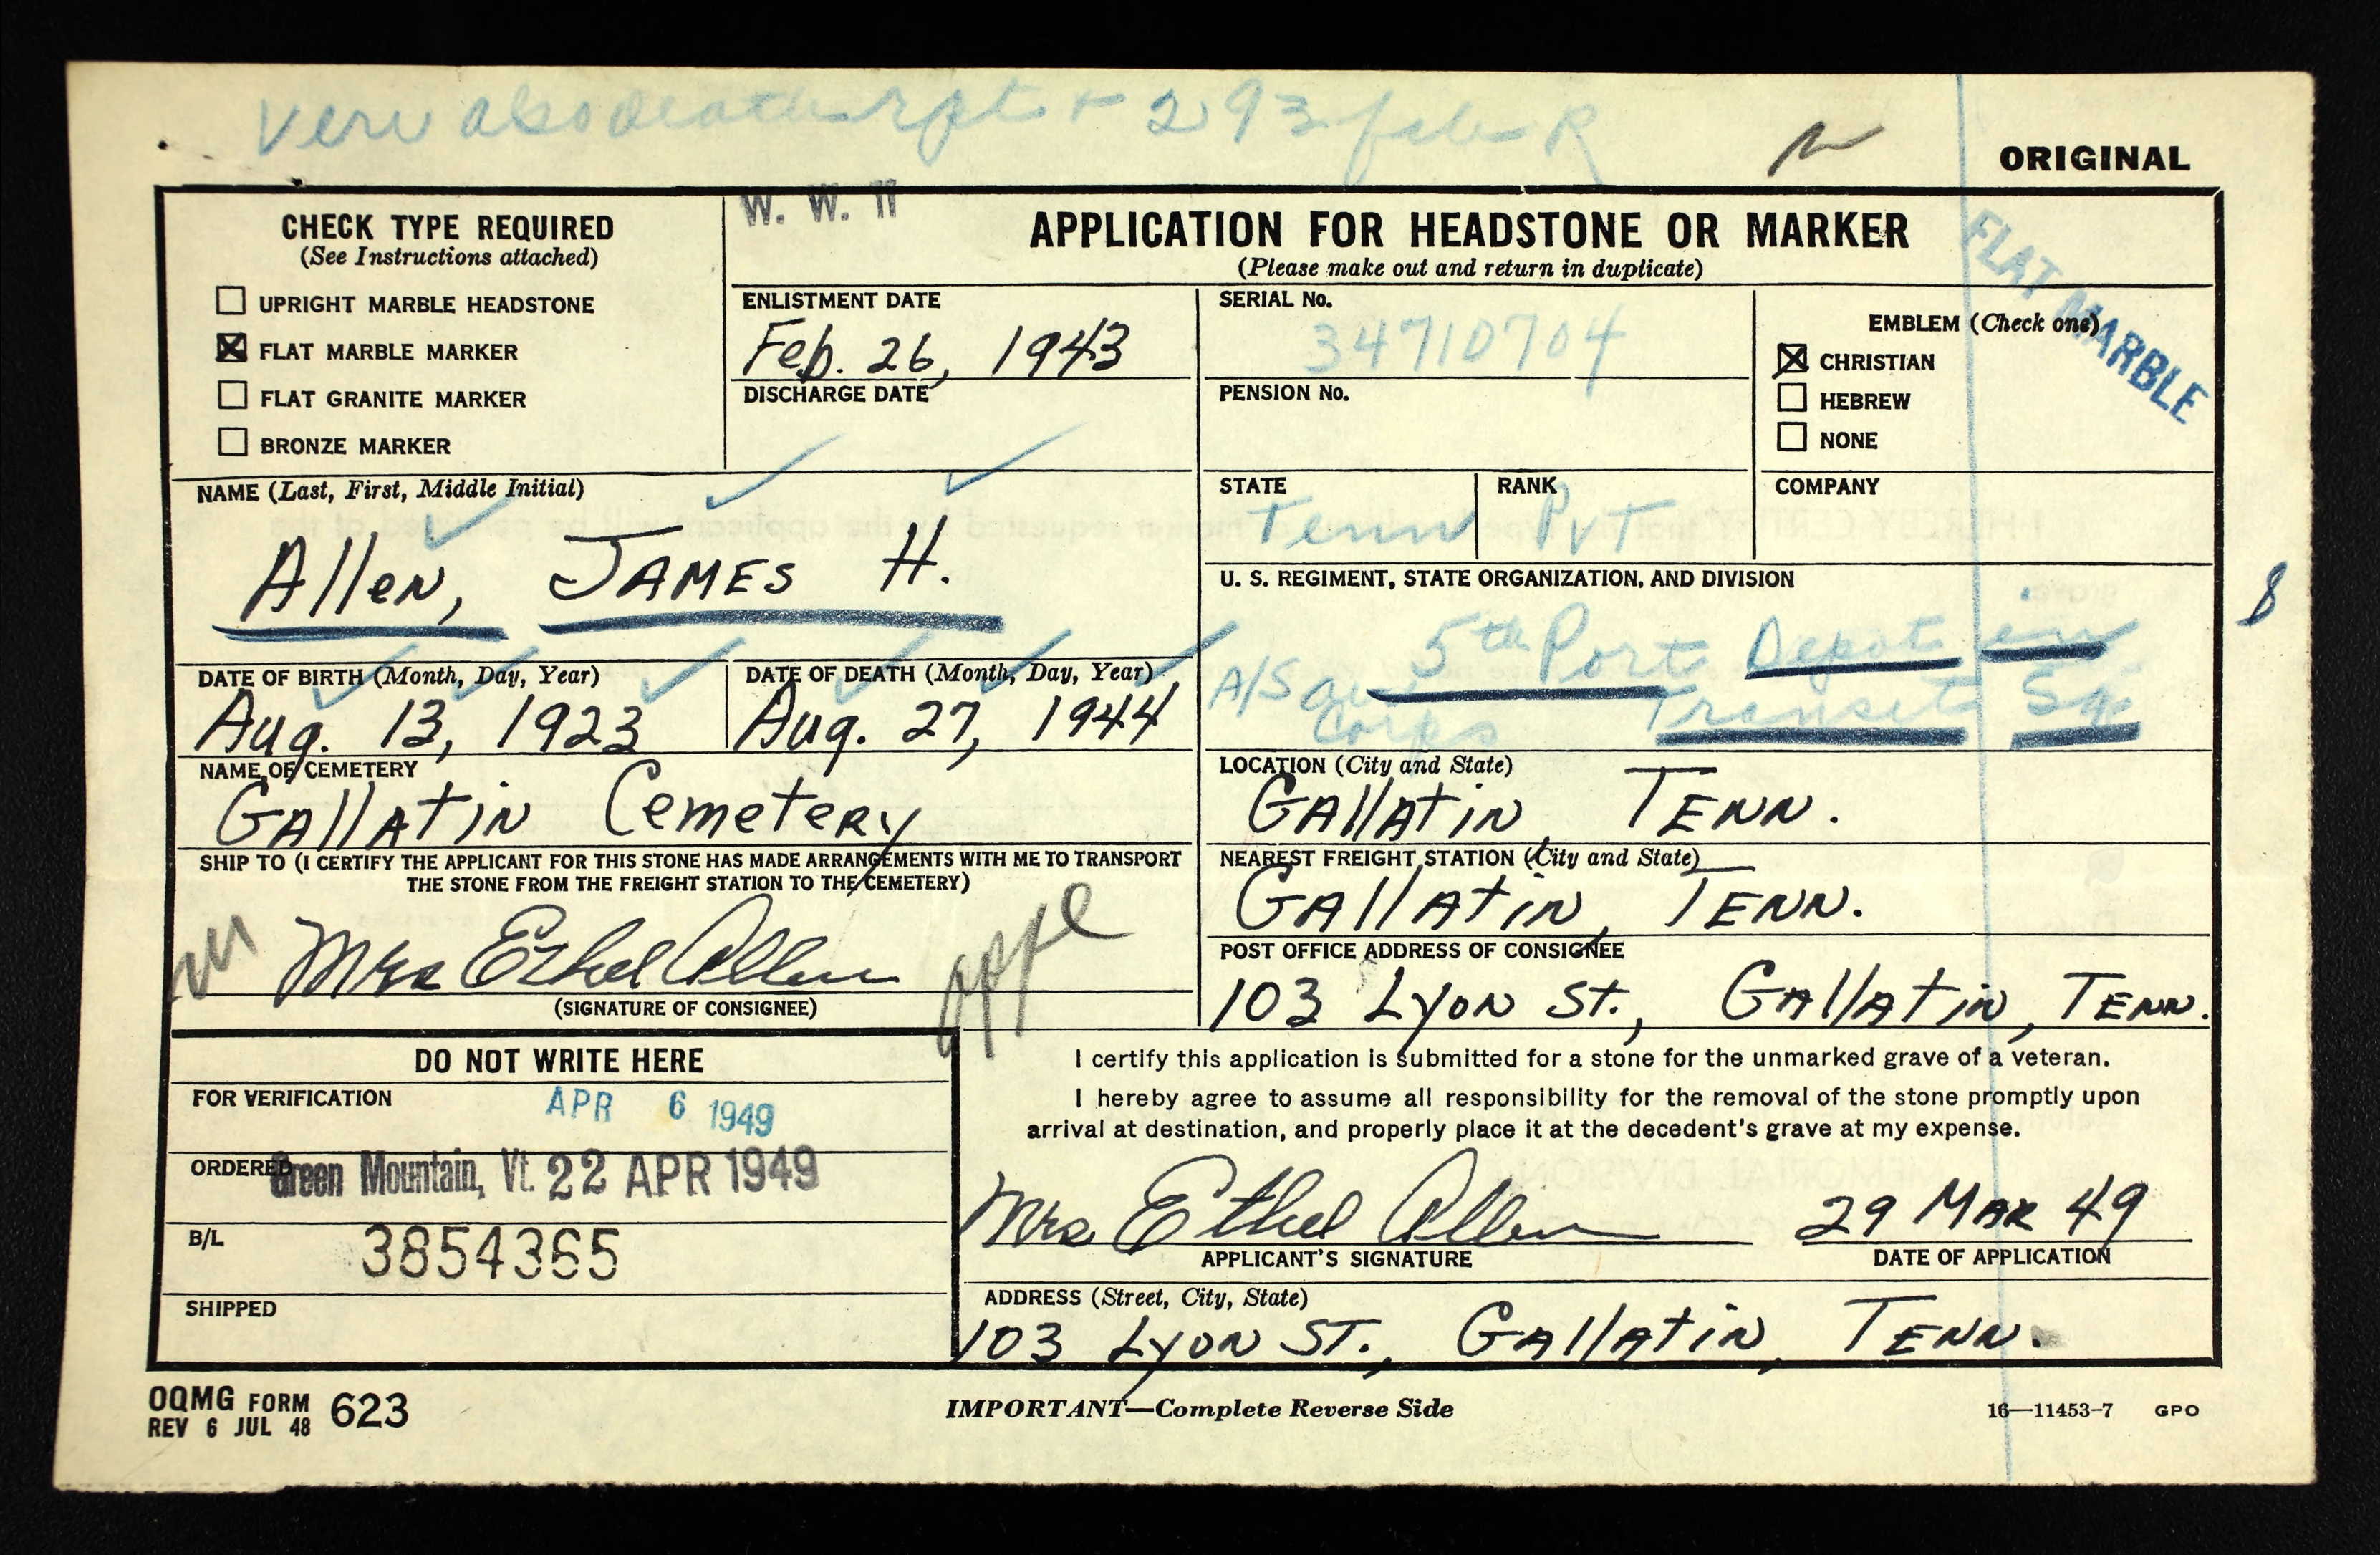 Veri also death rpt + 293 file R
ORIGINAL
W. W. II
CHECK TYPE REQUIRED
(See Instructions attached)
UPRIGHT MARBLE HEADSTONE
FLAT MARBLE MARKER
FLAT GRANITE MARKER
BRONZE MARKER
APPLICATION FOR HEADSTONE OR MARKER
(Please make out and return in duplicate)
FLAT MARBLE
ENLISTMENT DATE
Feb. 26, 1943
DISCHARGE DATE
SERIAL No.
34710704
PENSION No.
EMBLEM (Check one)
CHRISTIAN
HEBREW
NONE
NAME (Last, First, Middle Initial)
Allen, JAMES H.
STATE
Tenn
RANK
Pvt
COMPANY
U. S. REGIMENT, STATE ORGANIZATION, AND DIVISION
5th Port Depot en
A/S Transit Sq
Corps
8
DATE OF BIRTH (Month, Day, Year)
Aug. 13, 1923
DATE OF DEATH (Month, Day, Year)
Aug. 27, 1944
NAME OF CEMETERY
GALLATIN Cemetery
LOCATION (City and State)
GALLATIN, TENN.
SHIP TO (I CERTIFY THE APPLICANT FOR THIS STONE HAS MADE ARRANGEMENTS WITH ME TO TRANSPORT
THE STONE FROM THE FREIGHT STATION TO THE CEMETERY)
Mrs Ethel Allen
(SIGNATURE OF CONSIGNEE)
NEAREST FREIGHT STATION (City and State)
GALLATIN, TENN.
POST OFFICE ADDRESS OF CONSIGNEE
103 Lyon St., GALLATIN, TENN.
DO NOT WRITE HERE
FOR VERIFICATION
APR 6 1949
ORDERED
Green Mountain, Vt. 22 APR 1949
B/L
3854365
SHIPPED
I certify this application is submitted for a stone for the unmarked grave of a veteran.
I hereby agree to assume all responsibility for the removal of the stone promptly upon
arrival at destination, and properly place it at the decedent's grave at my expense.
Mrs Ethel Allen 29 MAR 49
APPLICANT'S SIGNATURE DATE OF APPLICATION
ADDRESS (Street, City, State)
103 Lyon ST., GALLATIN, TENN.
OQMG FORM 623
REV 6 JUL 48
IMPORTANT—Complete Reverse Side
16—11453-7 GPO